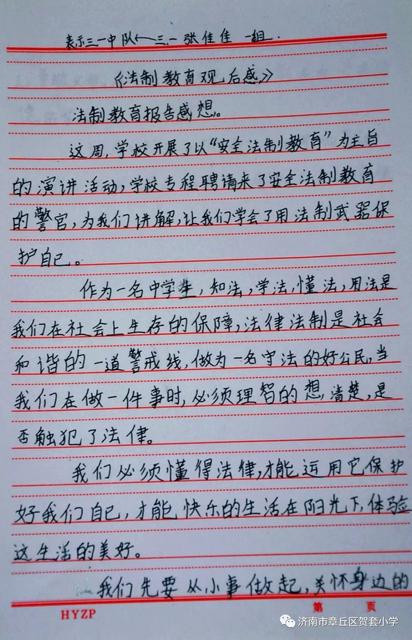 表示三一中队←三.一张佳佳一组.
《法制教育观后感》
法制教育报告感想。
这周,学校开展了以“安全法制教育”为主旨
的演讲活动,学校专程聘请来了安全法制教育
的警官,为我们讲解,让我们学会了用法制武器保
护自己。
作为一名中学生,知法,学法,懂法,用法是
我们在社会上生存的保障,法律法制是社会
和谐的一道警戒线,做为一名守法的好公民,当
我们在做一件事时,必须理智的想清楚,是
否触犯了法律。
我们必须懂得法律,才能运用它保护
好我们自己,才能快乐的生活在阳光下,体验
这生活的美好。
我们先要从小事做起,关怀身边的
HYZP 第 页
济南市章丘区贺套小学